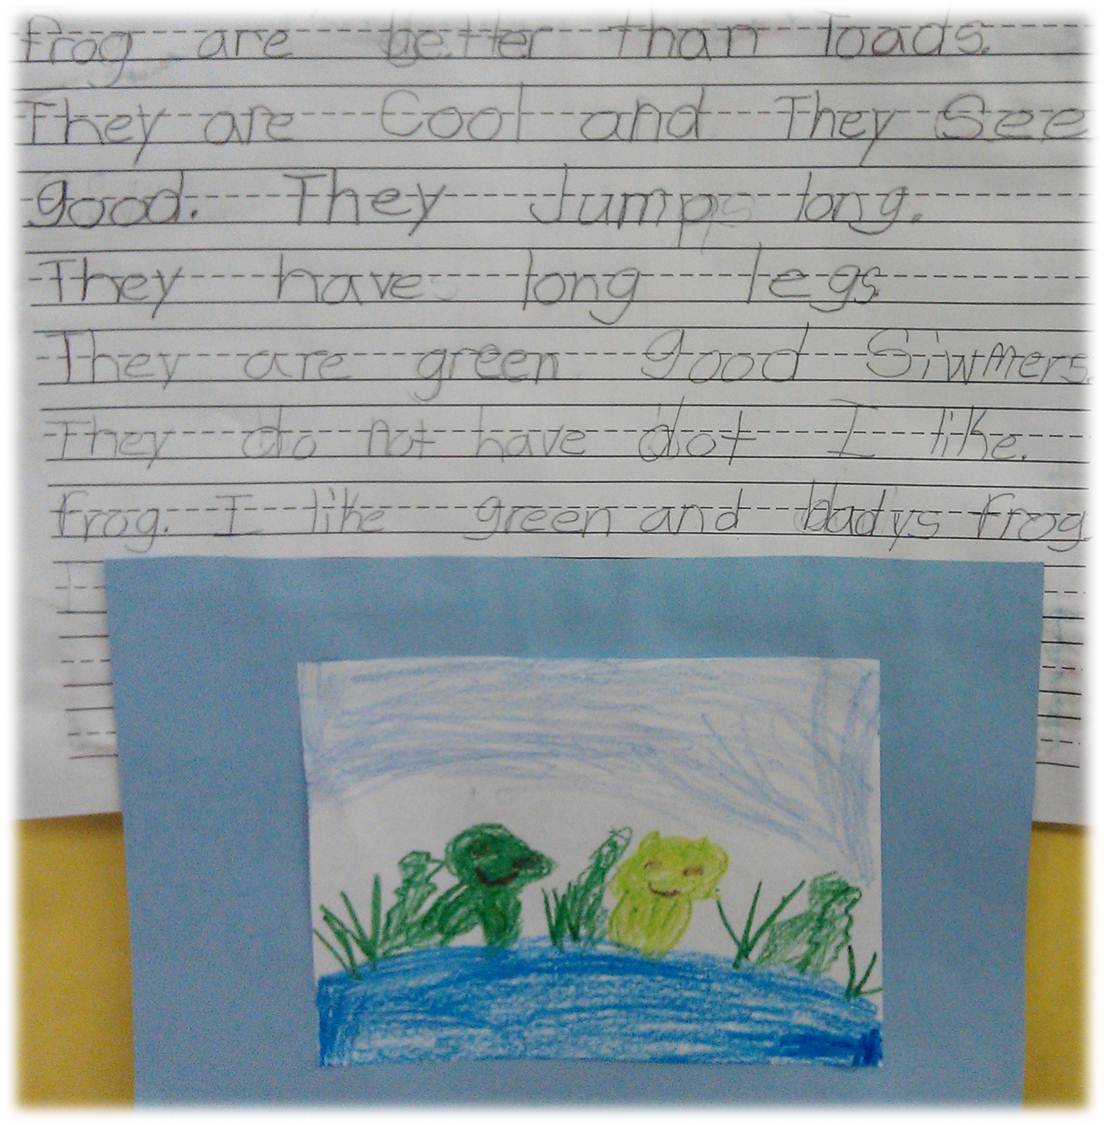 frog are better than Toads.
They are Cool and They See
good. They Jump long.
They have long legs.
They are green good Siwmers.
They do not have dot I like.
frog. I like green and bladys frog.